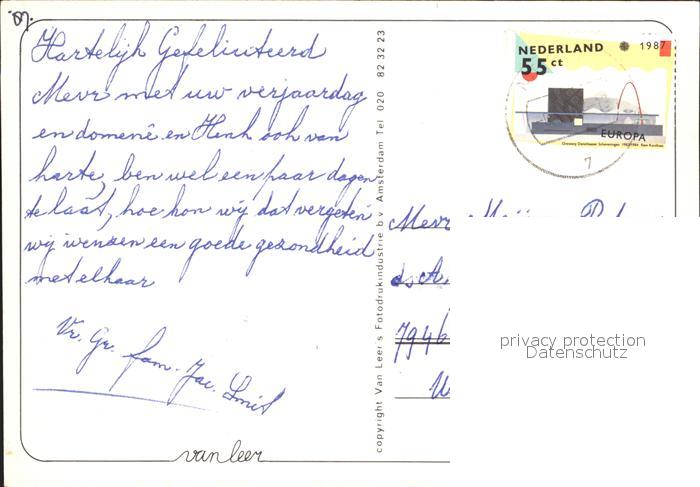 '87.
Hartelijk Gefeliciteerd
Mevr met uw verjaardag
en domenê en Henk ook van
harte, ben wel een paar dagen
te laat, hoe kon wij dat vergeten
wij wensen een goede gezondheid
met elkaar
Vr. Gr. fam. Jac. Smit
van leer
copyright Van Leer's Fotodrukindustrie b.v. Amsterdam Tel 020 82 32 23
NEDERLAND 1987
55 ct
EUROPA
7
Mevr
ds A.
7946
privacy protection
Datenschutz